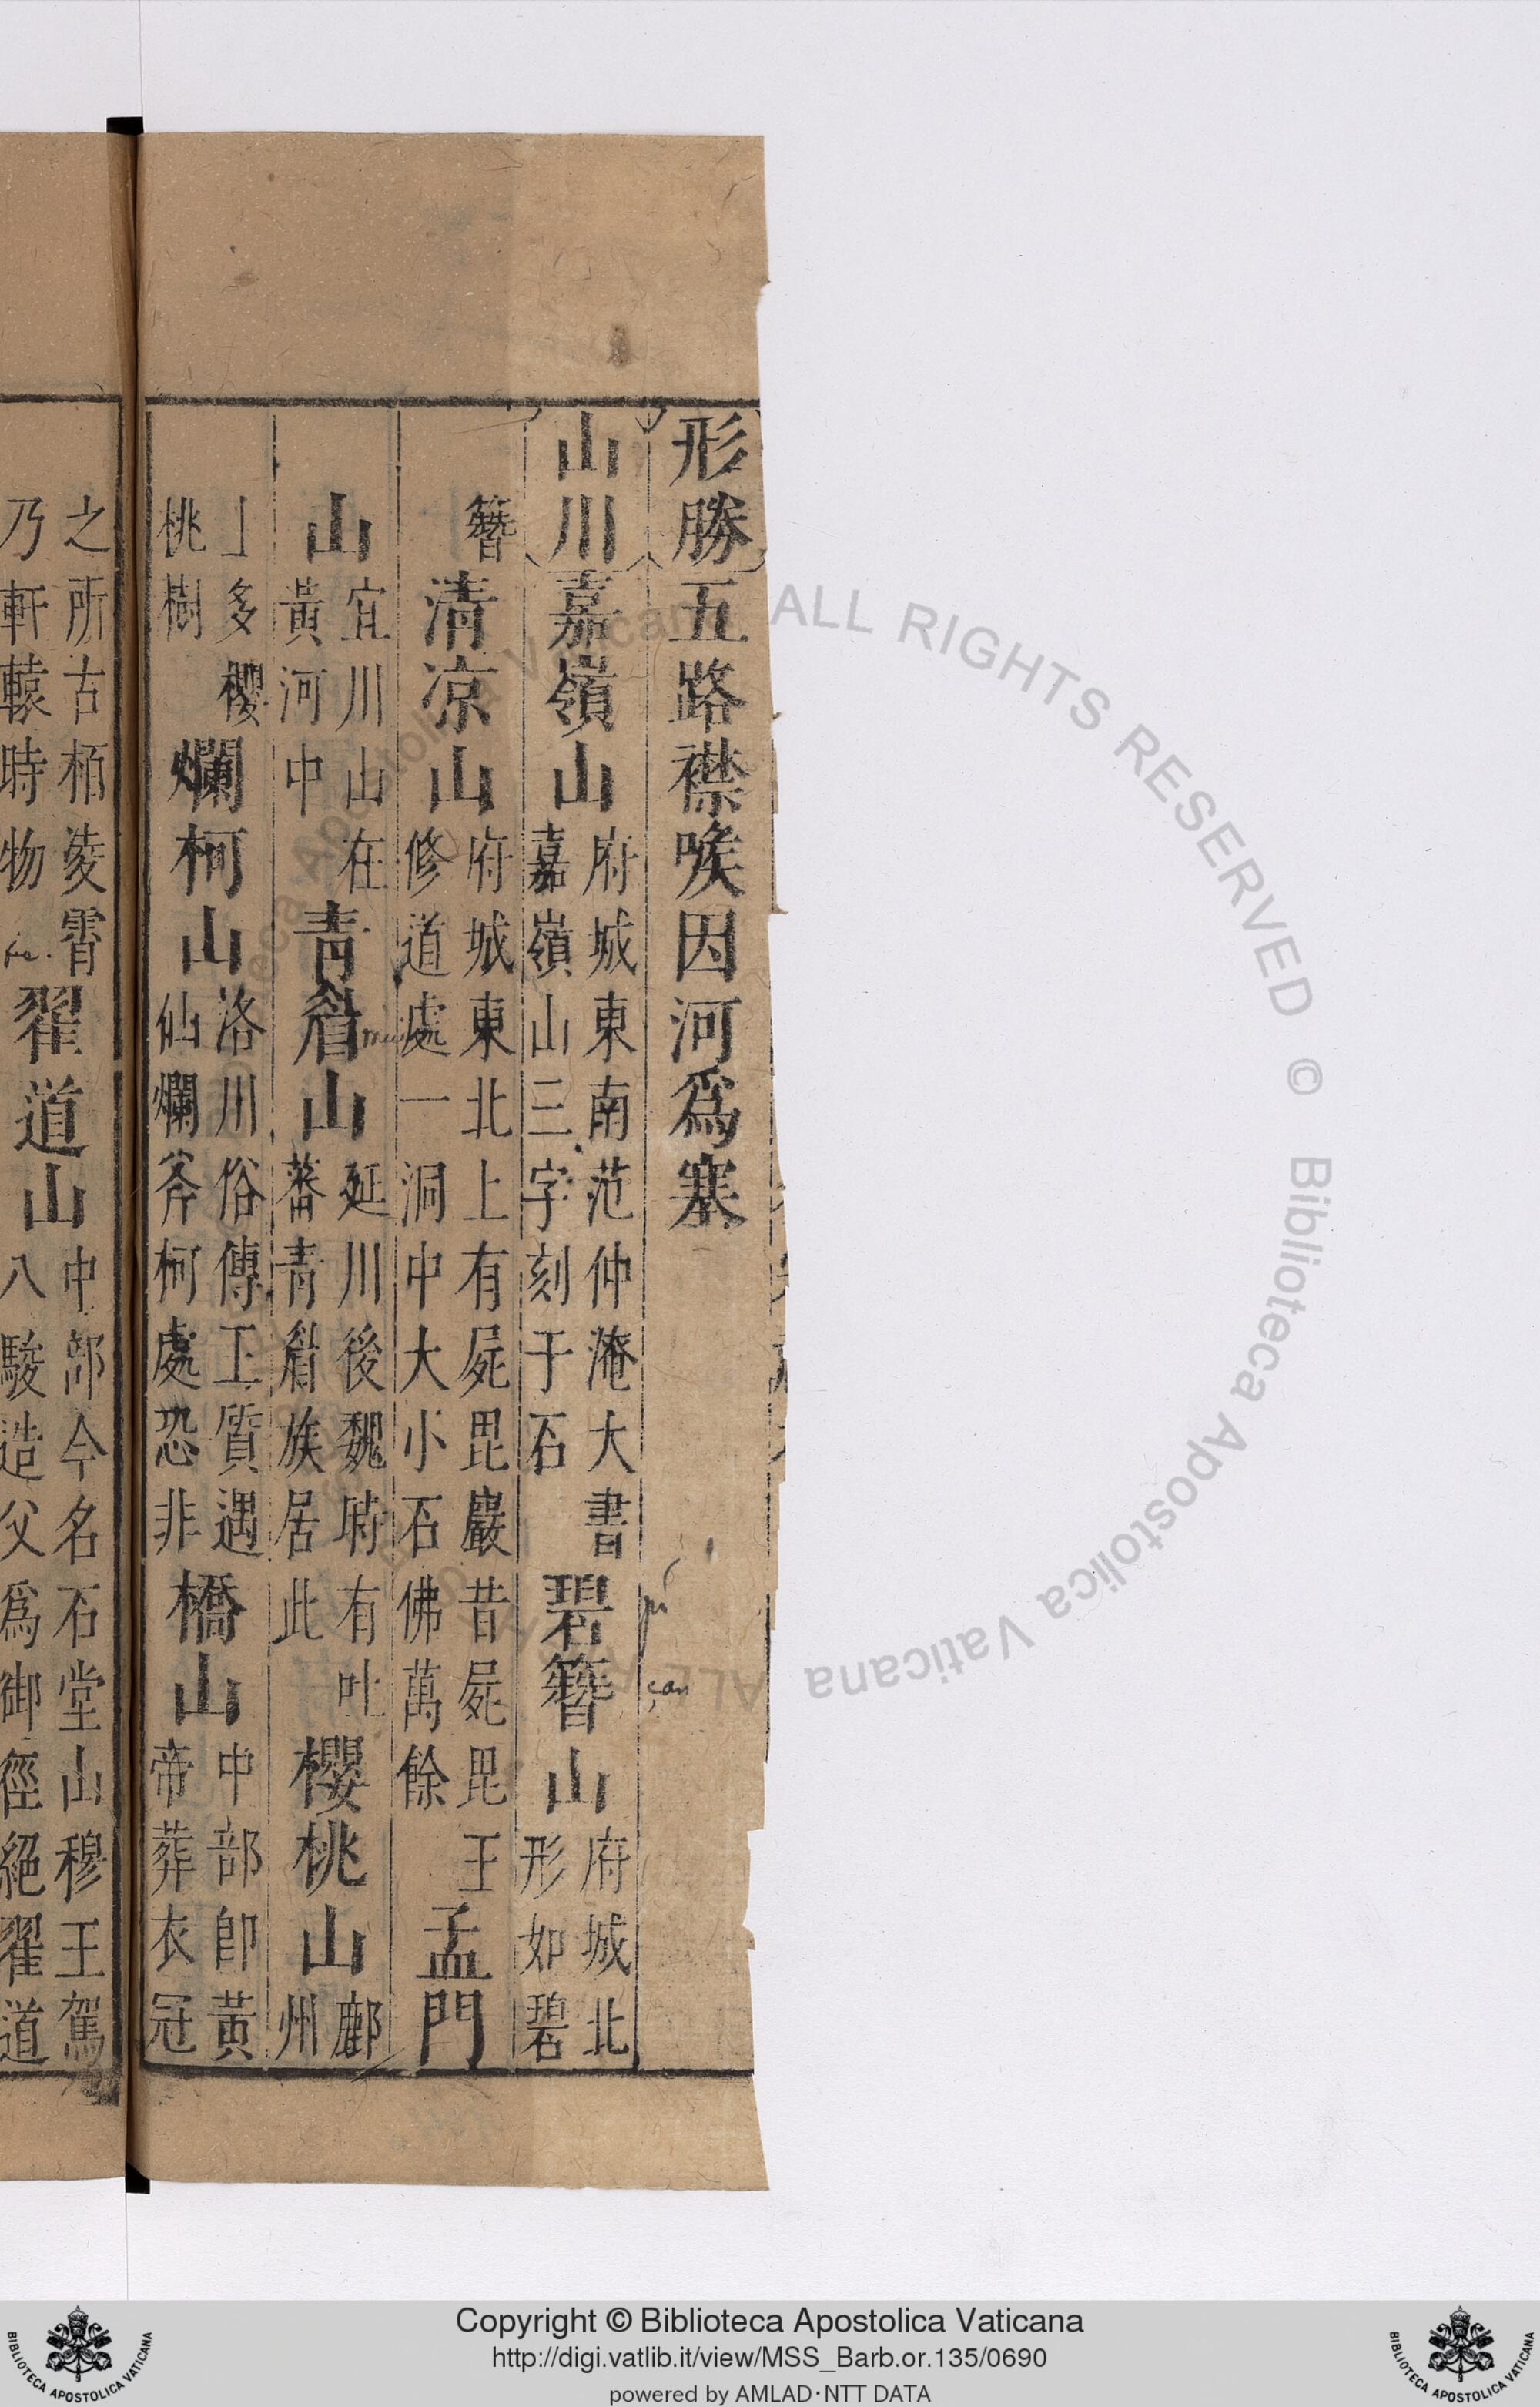 形勝五路襟喉因河爲塞
山川嘉嶺山府城東南范仲淹大書嘉嶺山三字刻于石碧簪山府城北形如碧
簪清凉山府城東北上有屍毘巖昔屍毘王修道處一洞中大小石佛萬餘孟門
山宜川山在黃河中青眉山延川後魏時有吐蕃青眉族居此櫻桃山鄜州
上多櫻桃樹爛柯山洛川俗傳王質遇仙爛斧柯處恐非橋山中部卽黃帝葬衣冠
之所古栢凌霄乃軒轅時物翟道山中部今名石堂山穆王駕八駿造父爲御徑絕翟道
pi
çan
ALL RIGHTS RESERVED © Biblioteca Apostolica Vaticana
Copyright © Biblioteca Apostolica Vaticana
http://digi.vatlib.it/view/MSS_Barb.or.135/0690
powered by AMLAD·NTT DATA
BIBLIOTECA APOSTOLICA VATICANA
BIBLIOTECA APOSTOLICA VATICANA